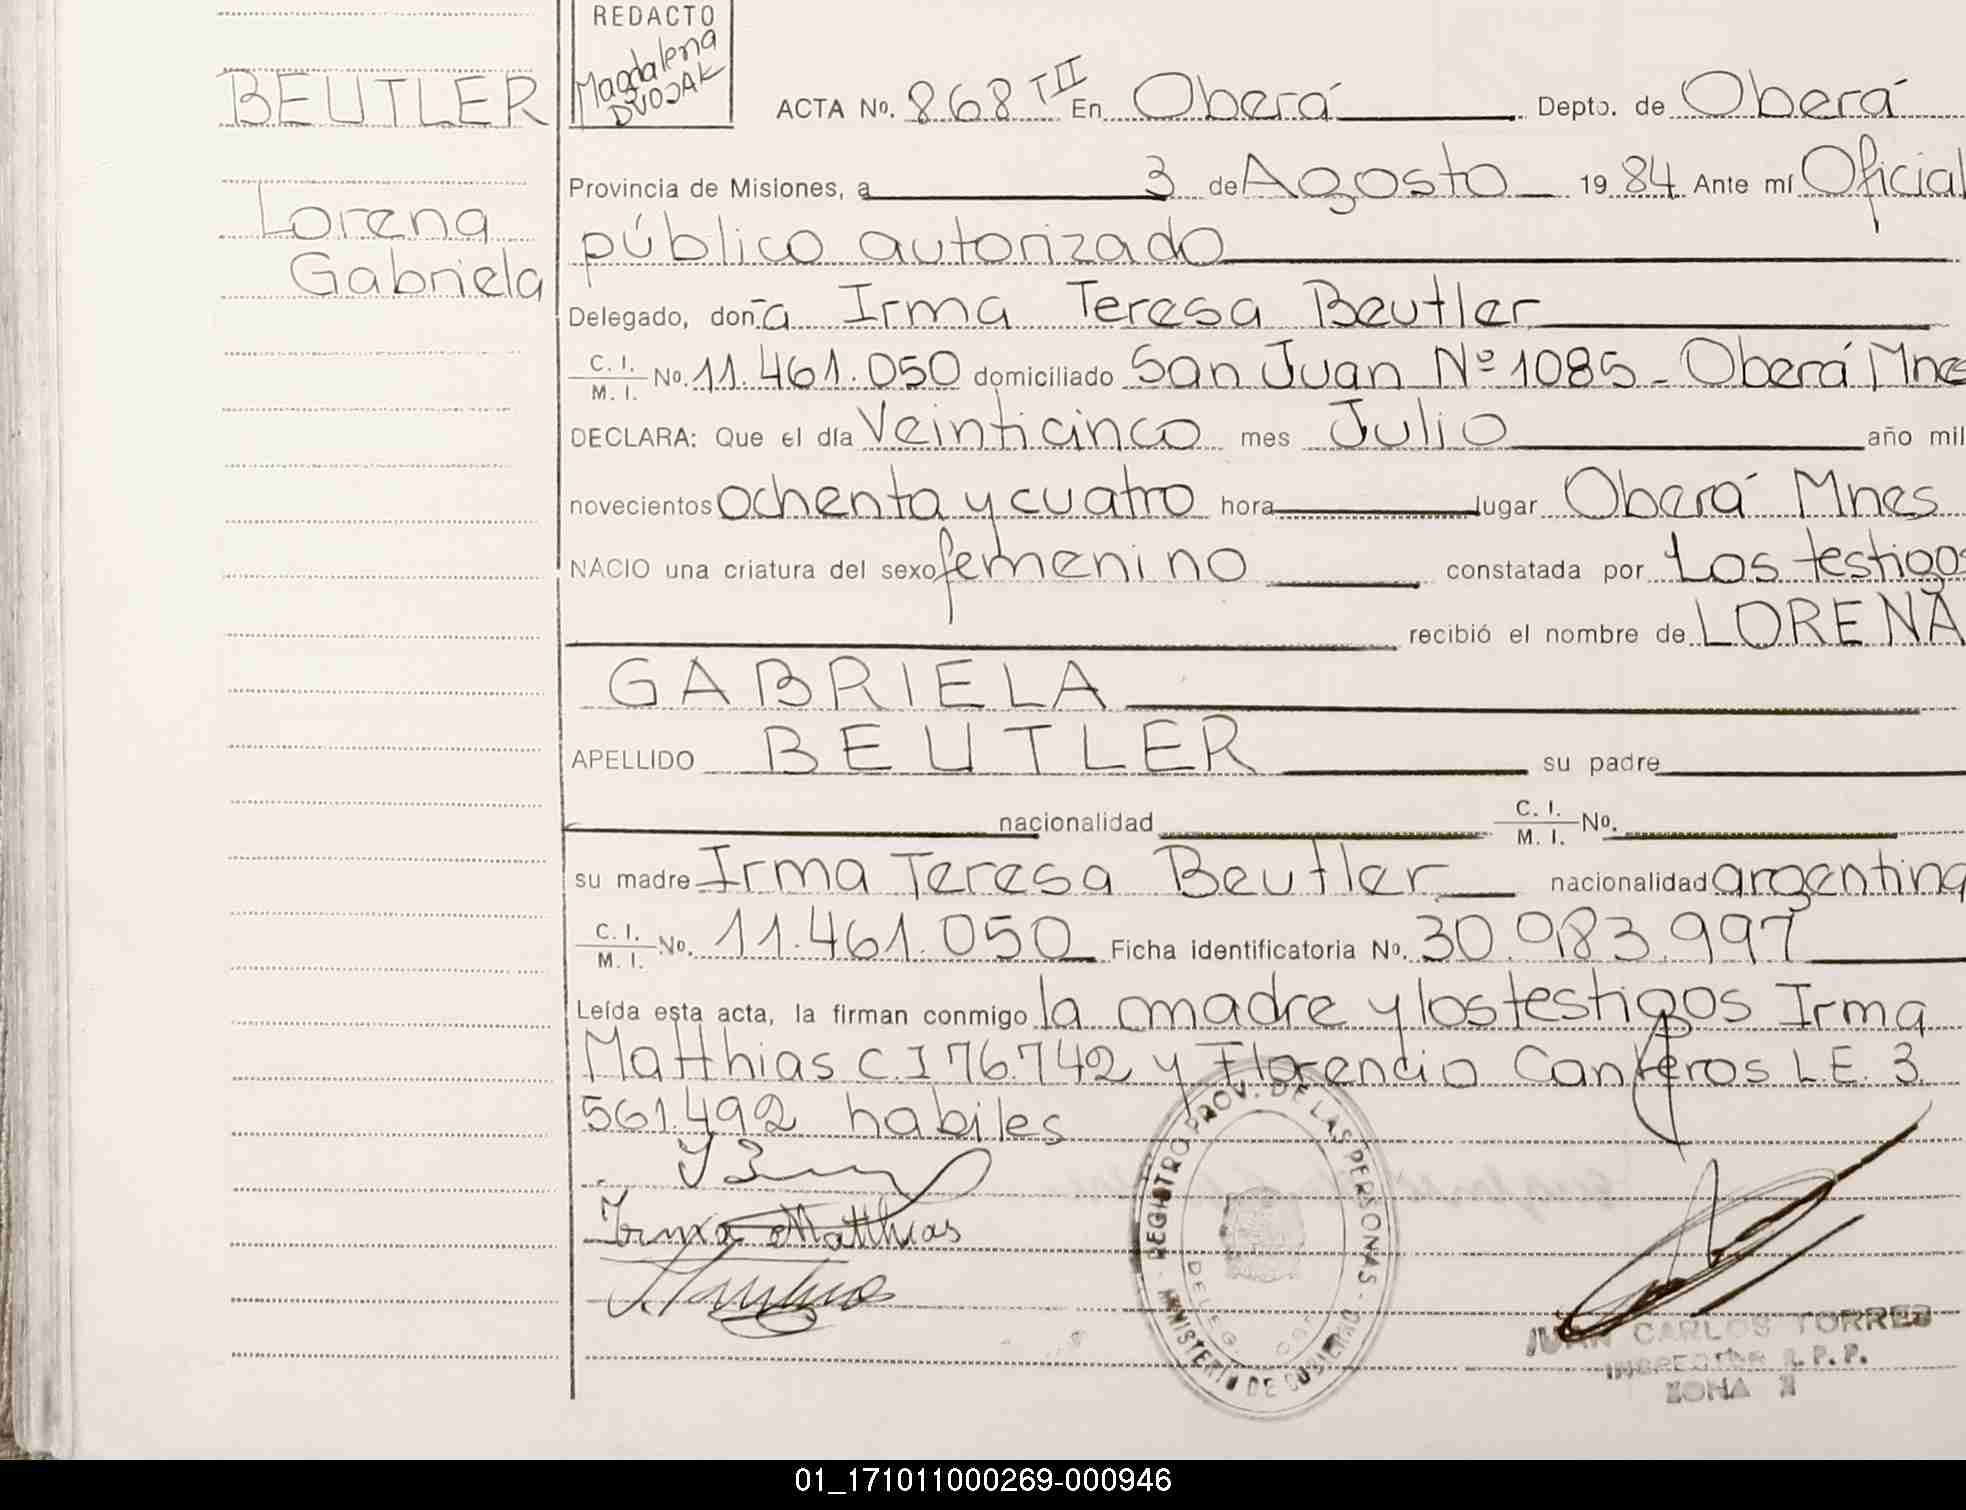 REDACTO
Magdalena
DVOJAK
BEUTLER
Lorena
Gabriela
ACTA No. 868 TII En Oberá Depto. de Oberá
Provincia de Misiones, a 3 de Agosto 1984 Ante mí Oficial
público autorizado
Delegado, doña Irma Teresa Beutler
C. I. M. I. No. 11.461.050 domiciliado San Juan Nº 1085 - Oberá Mnes
DECLARA: Que el día Veinticinco mes Julio año mil
novecientos ochenta y cuatro hora lugar Oberá Mnes
NACIO una criatura del sexo femenino constatada por Los testigos
recibió el nombre de LORENA
GABRIELA
APELLIDO BEUTLER su padre
nacionalidad C. I. M. I. No.
su madre Irma Teresa Beutler nacionalidad argentina
C. I. M. I. No. 11.461.050 Ficha identificatoria No. 30.983.997
Leída esta acta, la firman conmigo la madre y los testigos Irma
Matthias C.I 76.742 y Florencio Canteros L.E. 3.
561.492 habiles
Irma Matthias
REGISTRO PROV. DE LAS PERSONAS - MINISTERIO DE GOBIERNO
DELEG.
JUAN CARLOS TORRES
INSPECTOR R. P. P.
ZONA
01_171011000269-000946